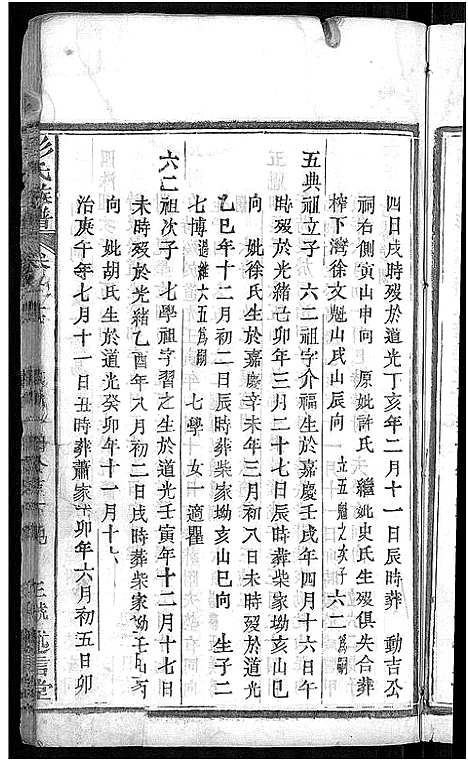 四日戌時歿於道光丁亥年二月十一日辰時葬　動吉公
祠右側寅山申向　原妣許氏　繼妣史氏生歿俱失合葬
榨下灣徐文魁山戌山辰向　立五魁之次子六二為嗣
五典祖立子　六二祖字介福生於嘉慶壬戌年四月十六日午
時歿於光緒己卯年三月二十七日辰時葬柴家坳亥山巳向
向　妣徐氏生於嘉慶辛未年三月初八日未時歿於道光
乙巳年十二月初二日辰時葬柴家坳亥山巳向　生子二
七博　六五為嗣　七學　女一適瞿
六二祖次子　七學祖字習之生於道光壬寅年十二月十七日
未時歿於光緒乙酉年八月初二日戌時葬柴家坳壬山丙
向　妣胡氏生於道光癸卯年十一月十
治庚午年七月十一日丑時葬蕭家　卯年六月初五日卯
彭氏族譜
信堂